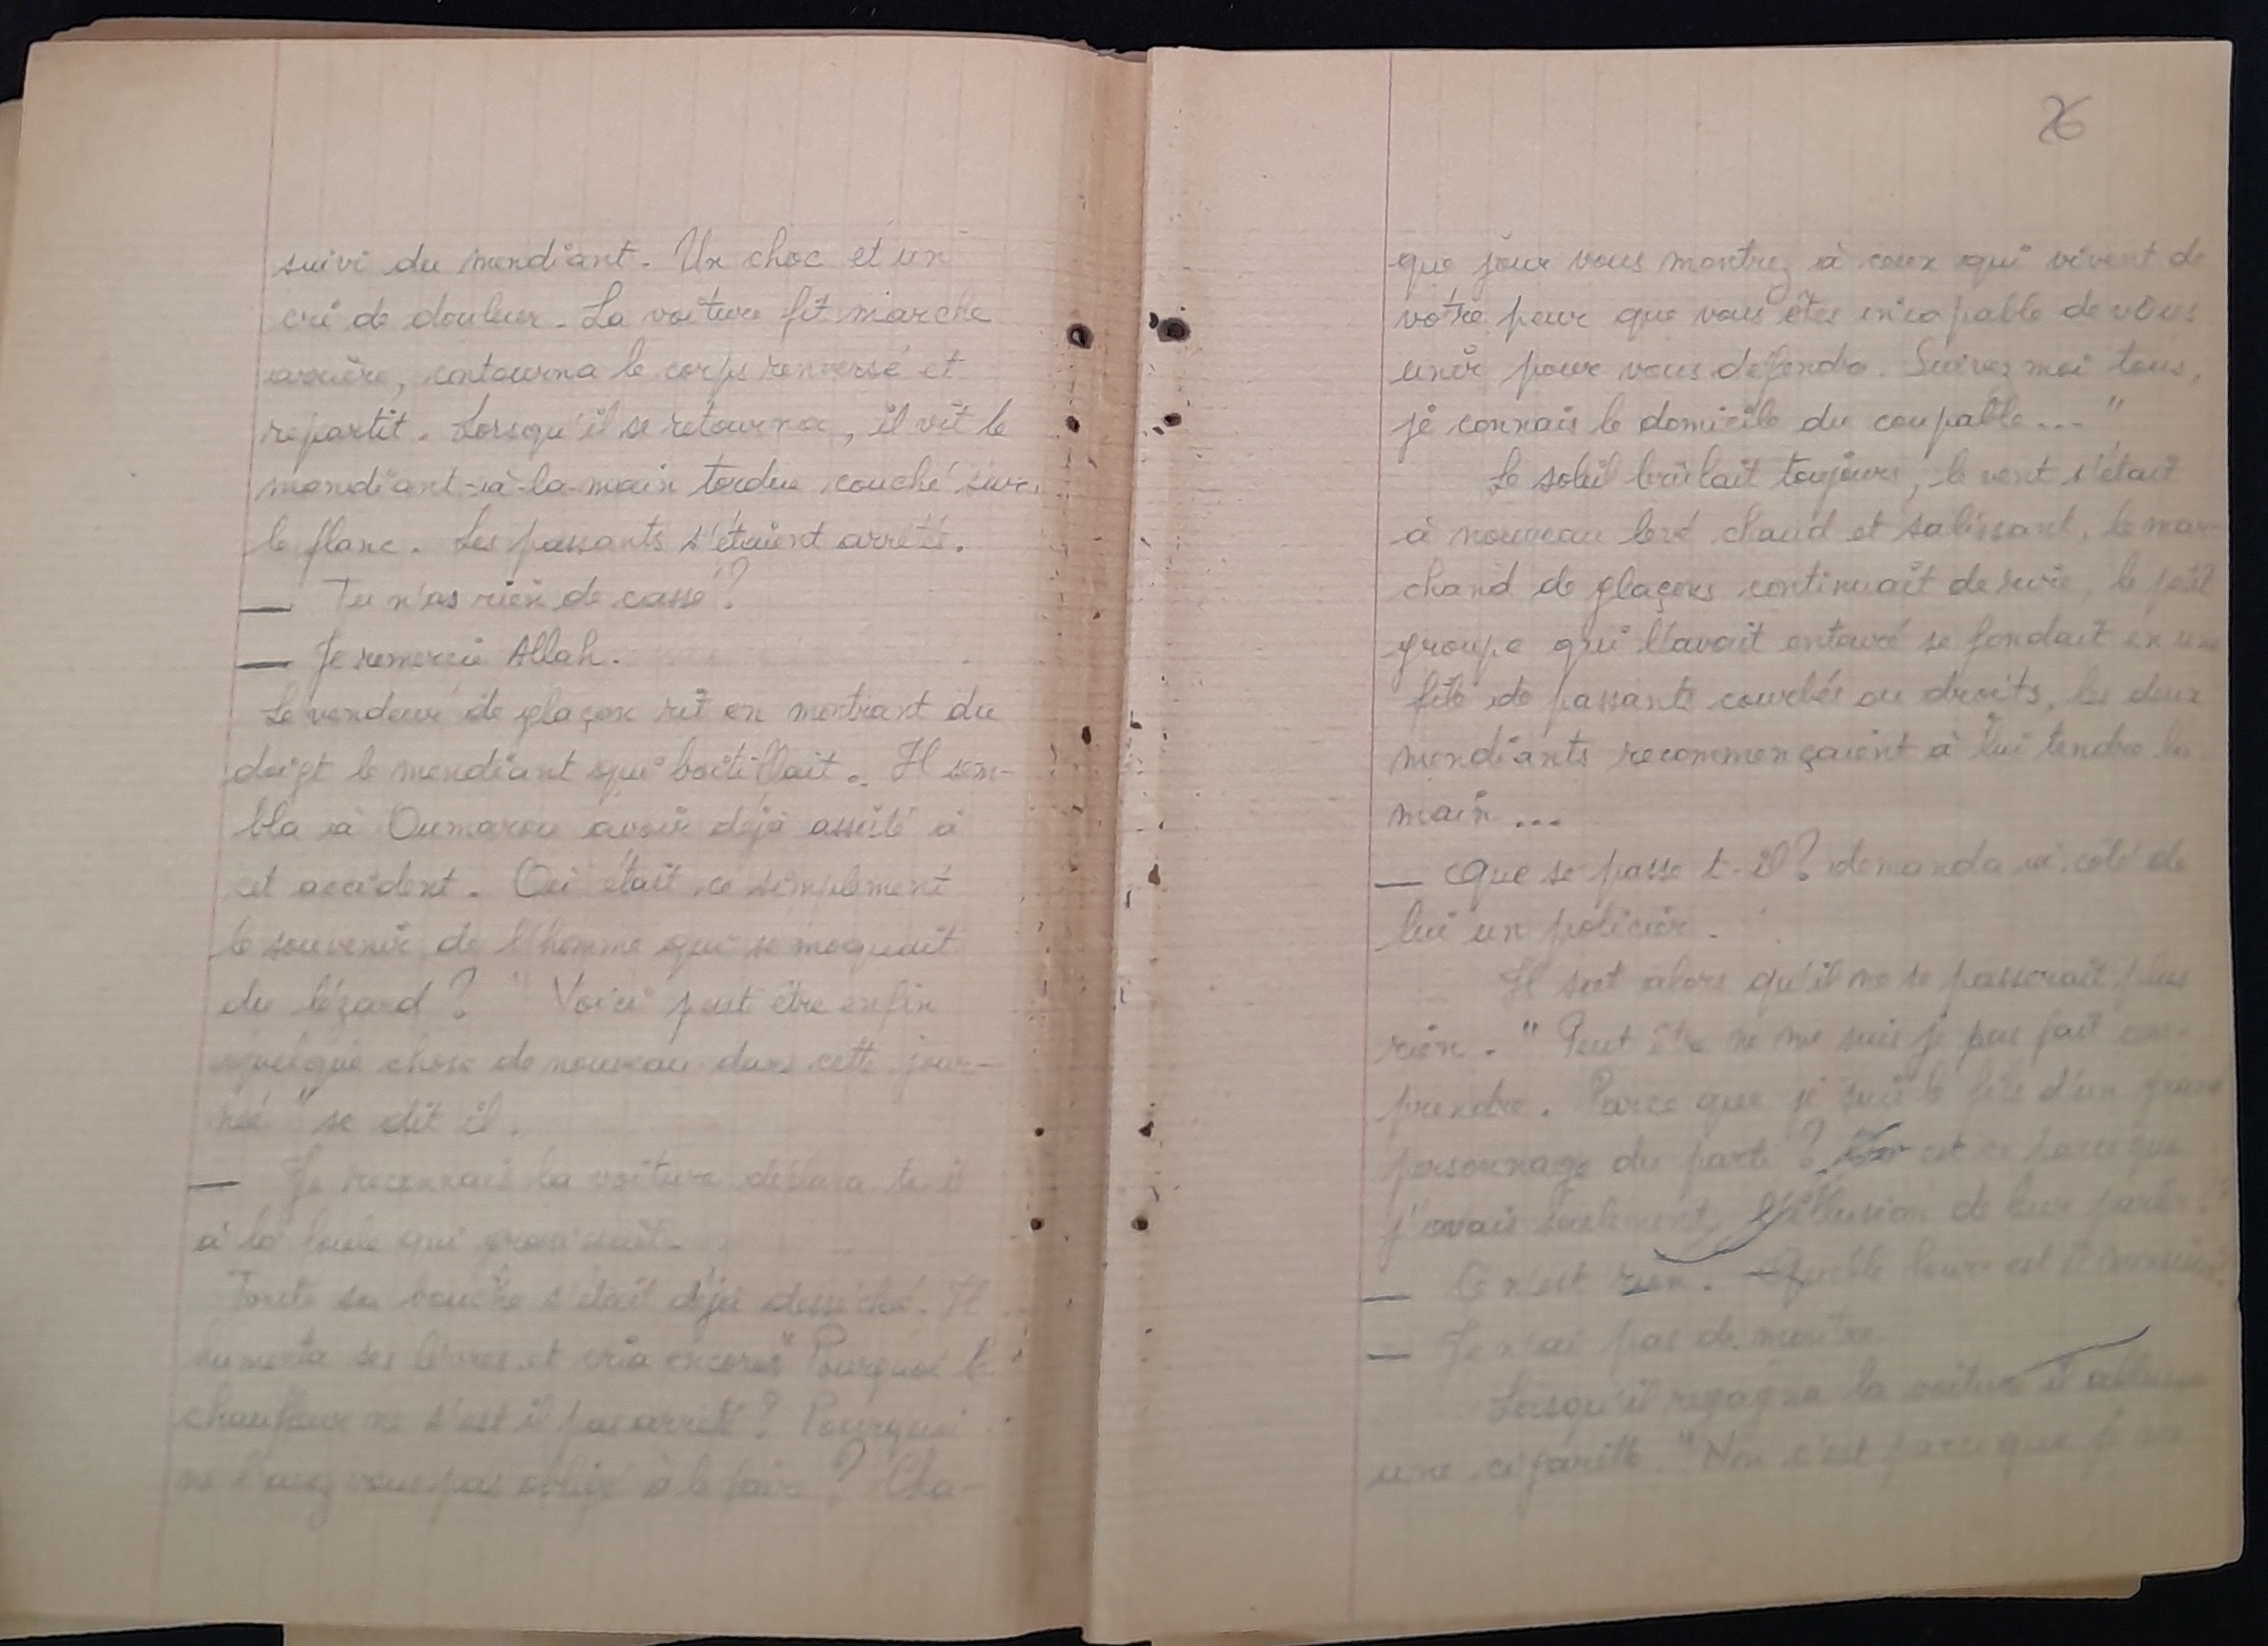 suivi du mendiant. Un choc et un
cri de douleur. La voiture fit marche
arrière, contourna le corps renversé et
repartit. Lorsqu'il se retourna, il vit le
mendiant-à-la-main tordue couché sur
le flanc. Les passants s'étaient arrêtés.
— Tu n'as rien de cassé?
— Je remercie Allah.
Le vendeur de glaçon rit en montrant du
doigt le mendiant qui boitillait. Il sem-
bla à Oumarou avoir déjà assisté à
cet accident. Ou était ce simplement
le souvenir de l'homme qui se moquait
du lézard? " Voici peut être enfin
quelque chose de nouveau dans cette jour-
née " se dit il.
— Je reconnais la voiture déclara t-il
à la foule qui grossissait.
Toute sa bouche s'était déjà desséché. Il
humecta ses lèvres et cria encore " Pourquoi le
chauffeur ne s'est il pas arrêté? Pourquoi
ne l'avez vous pas obligé à le faire? Cha-
26
que jour vous montrez à ceux qui vivent de
votre peur que vous êtes incapable de vous
unir pour vous défendre. Suivez moi tous,
je connais le domicile du coupable... "
Le soleil brûlait toujours, le vent s'était
à nouveau levé chaud et salissant, le mar-
chand de glaçons continuait de rire, le petit
groupe qui l'avait entouré se fondait en une
file de passants courbés ou droits, les deux
mendiants recommençaient à lui tendre la
main...
— Que se passe t-il? demanda à côté de
lui un policier.
Il sut alors qu'il ne se passerait plus
rien. " Peut être ne me suis je pas fait com-
prendre. Parce que je suis le fils d'un grand
personnage du parti? est ce parce que
j'avais seulement l'illusion de leur parler?"
— Ce n'est rien. Quelle heure est il
— Je n'ai pas de montre
Lorsqu'il regagna la voiture il alluma
une cigarette. " Non c'est parce que je ne